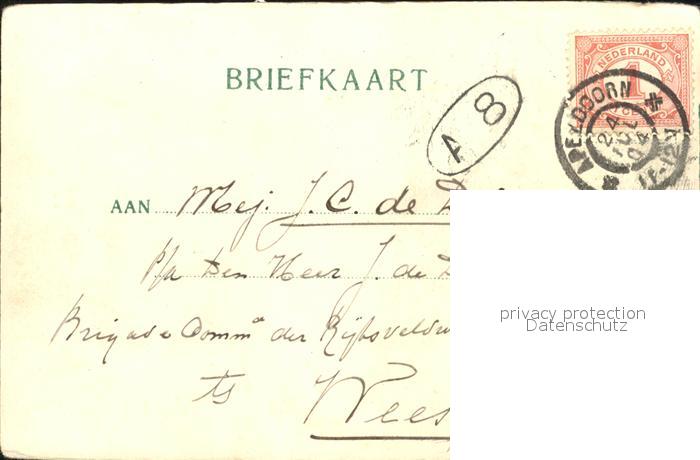 BRIEFKAART
NEDERLAND
1
APELDOORN
24
11-12V
A 8
AAN Mej. J. C. de
p/a Den Heer J. de
Brigade Commt der Rijksveldw
te
Wees
privacy protection
Datenschutz